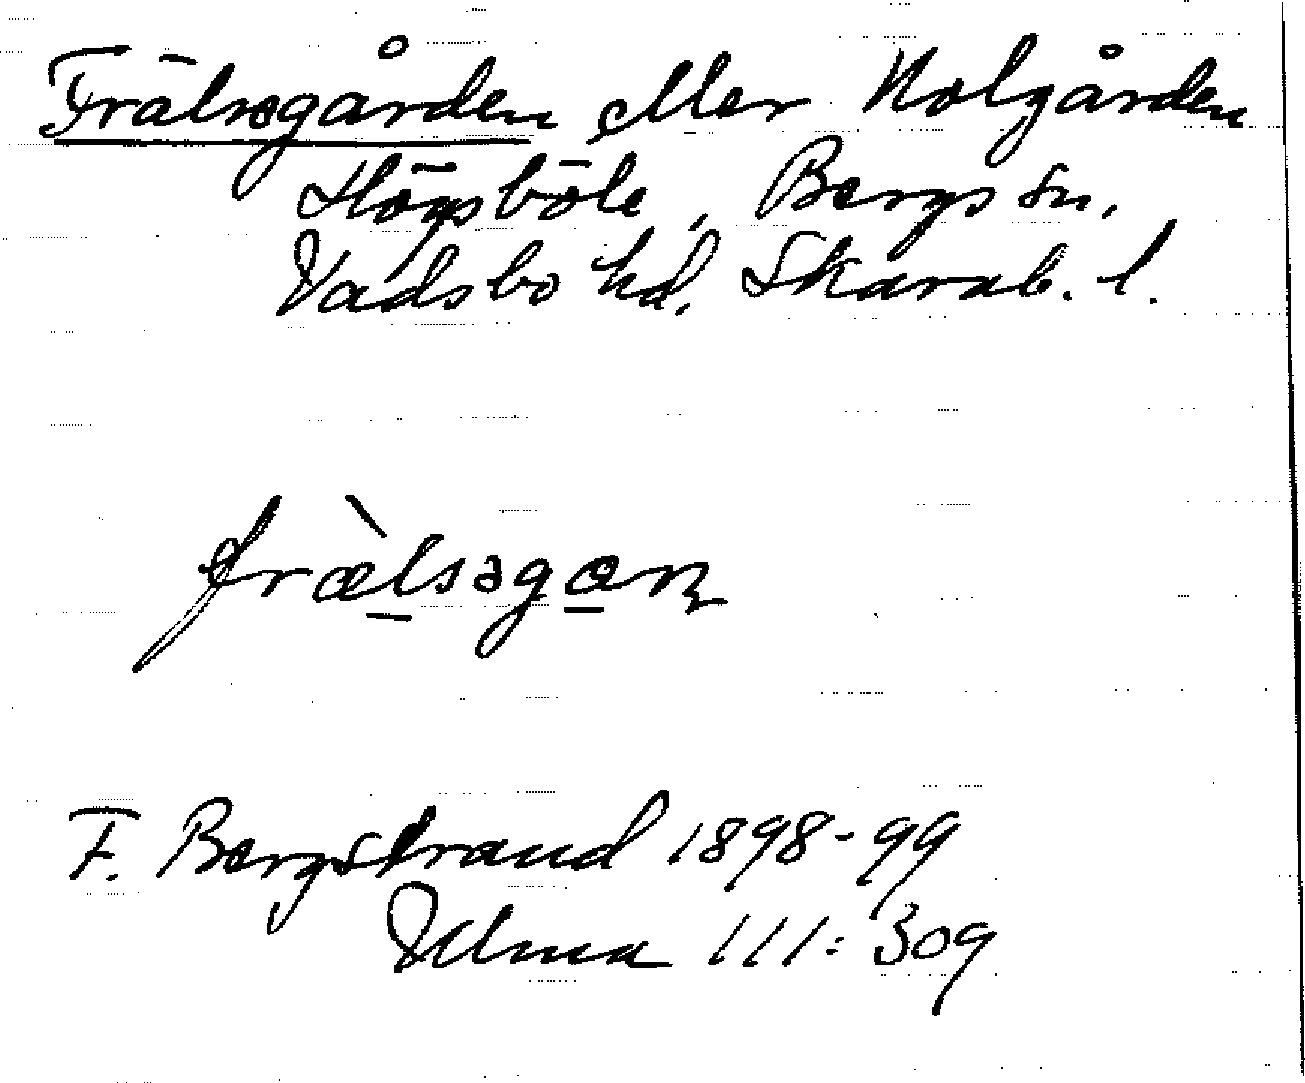 Frälsegården eller Nolgården
Högsböle, Bergs sn,
Vadsbo hd, Skarab. l.
fræ̀lsəgɑn
F. Bergstrand 1898-99
Ulma 111:309